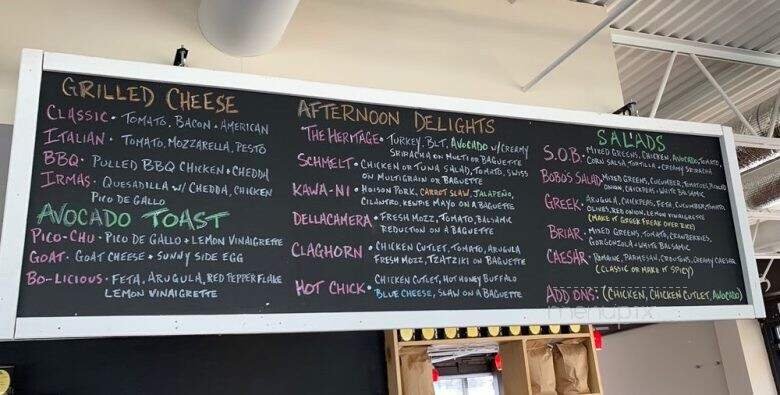 GRILLED CHEESE
CLASSIC • TOMATO, BACON • AMERICAN
ITALIAN • TOMATO, MOZZARELLA, PESTO
BBQ • PULLED BBQ CHICKEN • CHEDDA
IRMAS • QUESADILLA W/ CHEDDA, CHICKEN
PICO DE GALLO
AVOCADO TOAST
PICO-CHU • PICO DE GALLO • LEMON VINAIGRETTE
GOAT • GOAT CHEESE • SUNNY SIDE EGG
BO-LICIOUS • FETA, ARUGULA, RED PEPPER FLAKE
LEMON VINAIGRETTE
AFTERNOON DELIGHTS
THE HERITAGE • TURKEY, BLT, AVOCADO W/ CREAMY
SRIRACHA ON MULTI OR BAGUETTE
SCHMELT • CHICKEN OR TUNA SALAD, TOMATO, SWISS
ON MULTIGRAIN OR BAGUETTE
KAWA-NI • HOISON PORK, CARROT SLAW, JALAPEÑO,
CILANTRO, KEWPIE MAYO ON A BAGUETTE
DELLACAMERA • FRESH MOZZ, TOMATO, BALSAMIC
REDUCTION ON A BAGUETTE
CLAGHORN • CHICKEN CUTLET, TOMATO, ARUGULA
FRESH MOZZ, TZATZIKI ON BAGUETTE
HOT CHICK • CHICKEN CUTLET, HOT HONEY BUFFALO
BLUE CHEESE, SLAW ON A BAGUETTE
SALADS
S.O.B. • MIXED GREENS, CHICKEN, AVOCADO, TOMATO,
CORN SALSA, TORTILLA • CREAMY SRIRACHA
BOBO'S SALAD • MIXED GREENS, CUCUMBER, TOMATOES, PICKLED
ONION, CHICKPEAS • WHITE BALSAMIC
GREEK • ARUGULA, CHICKPEAS, FETA, CUCUMBER, TOMATO,
OLIVES, RED ONION, LEMON VINAIGRETTE
(MAKE IT GREEK FREAK OVER RICE)
BRIAR • MIXED GREENS, TOMATO, CRANBERRIES,
GORGONZOLA • WHITE BALSAMIC
CAESAR • ROMAINE, PARMESAN, CROUTONS, CREAMY CAESAR
(CLASSIC OR MAKE IT SPICY)
ADD ONS: (CHICKEN, CHICKEN CUTLET, AVOCADO)
menupix